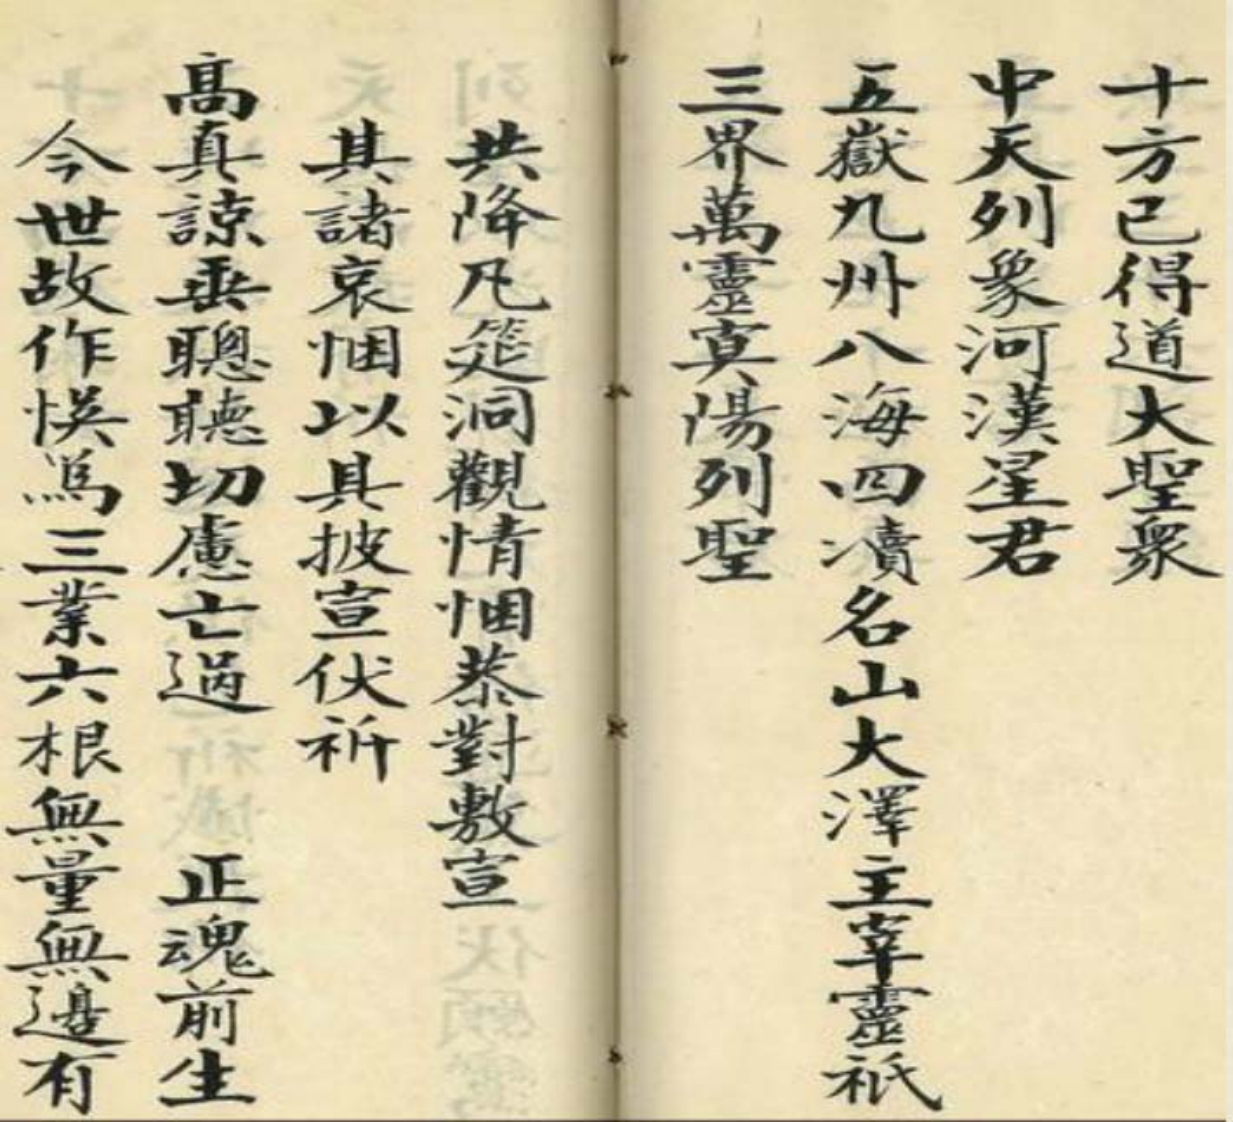 十方已得道大聖衆
中天列象河漢星君
五嶽九州八海四瀆名山大澤主宰靈祇
三界萬靈寞陽列聖
共降凡筵洞觀情悃恭對敷宣
其諸哀悃以具披宣伏祈
髙真諒垂聰聽切慮亡過 正魂前生
今世故作悞為三業六根無量無邊有